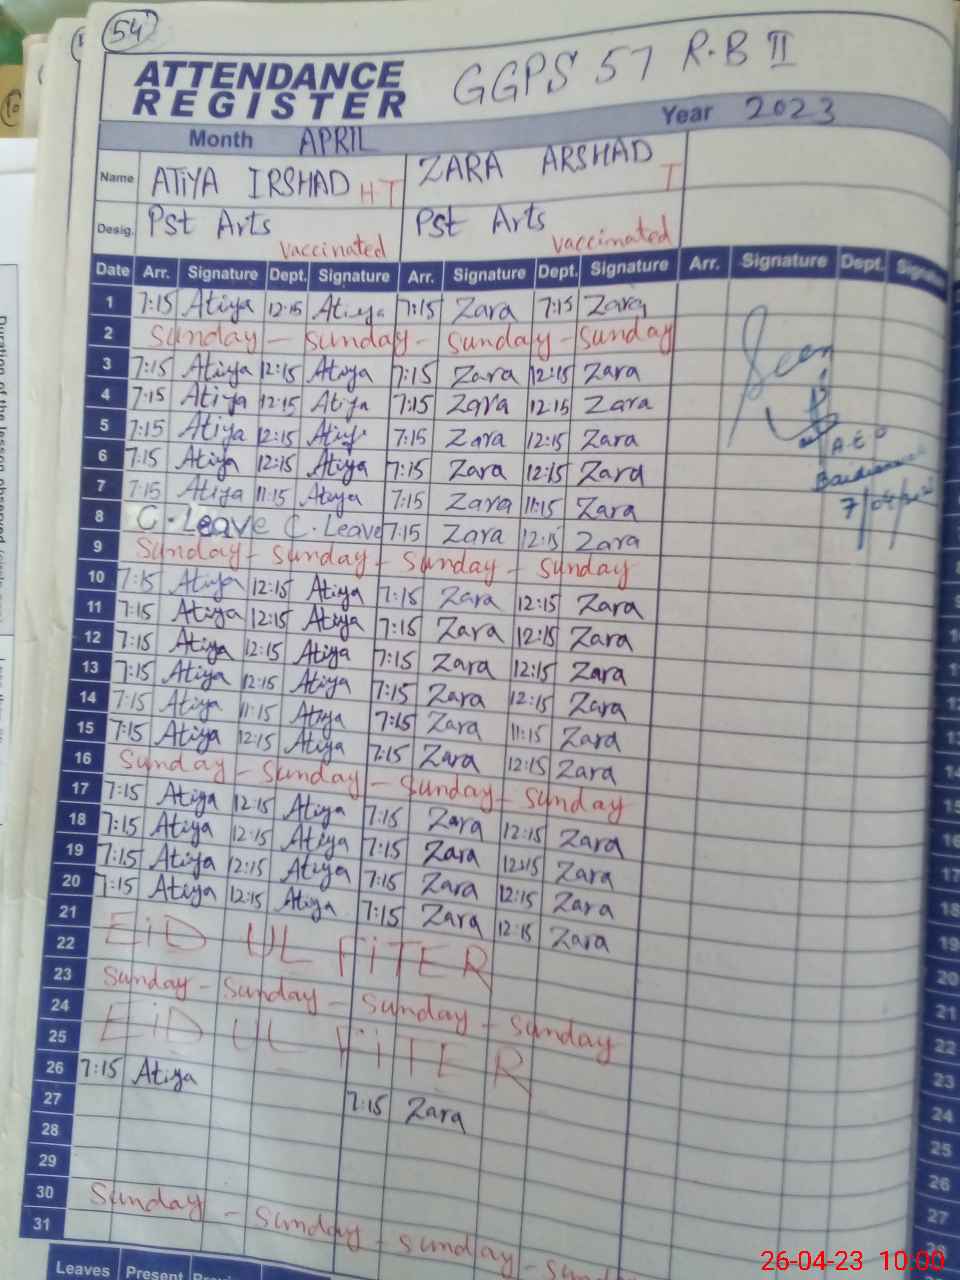 54
ATTENDANCE REGISTER GGPS 57 R.B II
Month APRIL Year 2023
Name ATIYA IRSHAD HT ZARA ARSHAD T
Desig. Pst Arts vaccinated Pst Arts vaccinated
Date Arr. Signature Dept. Signature Arr. Signature Dept. Signature Arr. Signature Dept.
1 7:15 Atiya 12:15 Atiya 7:15 Zara 7:15 Zara
2 Sunday - Sunday - Sunday - Sunday
3 7:15 Atiya 12:15 Atiya 7:15 Zara 12:15 Zara
4 7:15 Atiya 12:15 Atiya 7:15 Zara 12:15 Zara
5 7:15 Atiya 12:15 Atiya 7:15 Zara 12:15 Zara
6 7:15 Atiya 12:15 Atiya 7:15 Zara 12:15 Zara
7 7:15 Atiya 11:15 Atiya 7:15 Zara 11:15 Zara
8 C. Leave C. Leave 7:15 Zara 12:15 Zara
9 Sunday - Sunday - Sunday - Sunday
10 7:15 Atiya 12:15 Atiya 7:15 Zara 12:15 Zara
11 7:15 Atiya 12:15 Atiya 7:15 Zara 12:15 Zara
12 7:15 Atiya 12:15 Atiya 7:15 Zara 12:15 Zara
13 7:15 Atiya 12:15 Atiya 7:15 Zara 12:15 Zara
14 7:15 Atiya 11:15 Atiya 7:15 Zara 11:15 Zara
15 7:15 Atiya 12:15 Atiya 7:15 Zara 12:15 Zara
16 Sunday - Sunday - Sunday - Sunday
17 7:15 Atiya 12:15 Atiya 7:15 Zara 12:15 Zara
18 7:15 Atiya 12:15 Atiya 7:15 Zara 12:15 Zara
19 7:15 Atiya 12:15 Atiya 7:15 Zara 12:15 Zara
20 7:15 Atiya 12:15 Atiya 7:15 Zara 12:15 Zara
21
22 EiD UL FiTER
23 Sunday - Sunday - Sunday - Sunday
24
25 EiD UL FiTER
26 7:15 Atiya
27 7:15 Zara
28
29
30 Sunday - Sunday - Sunday -
31
Leaves Present
Seen
A.E.O
26-04-23 10:00
Duration of the lesson observed